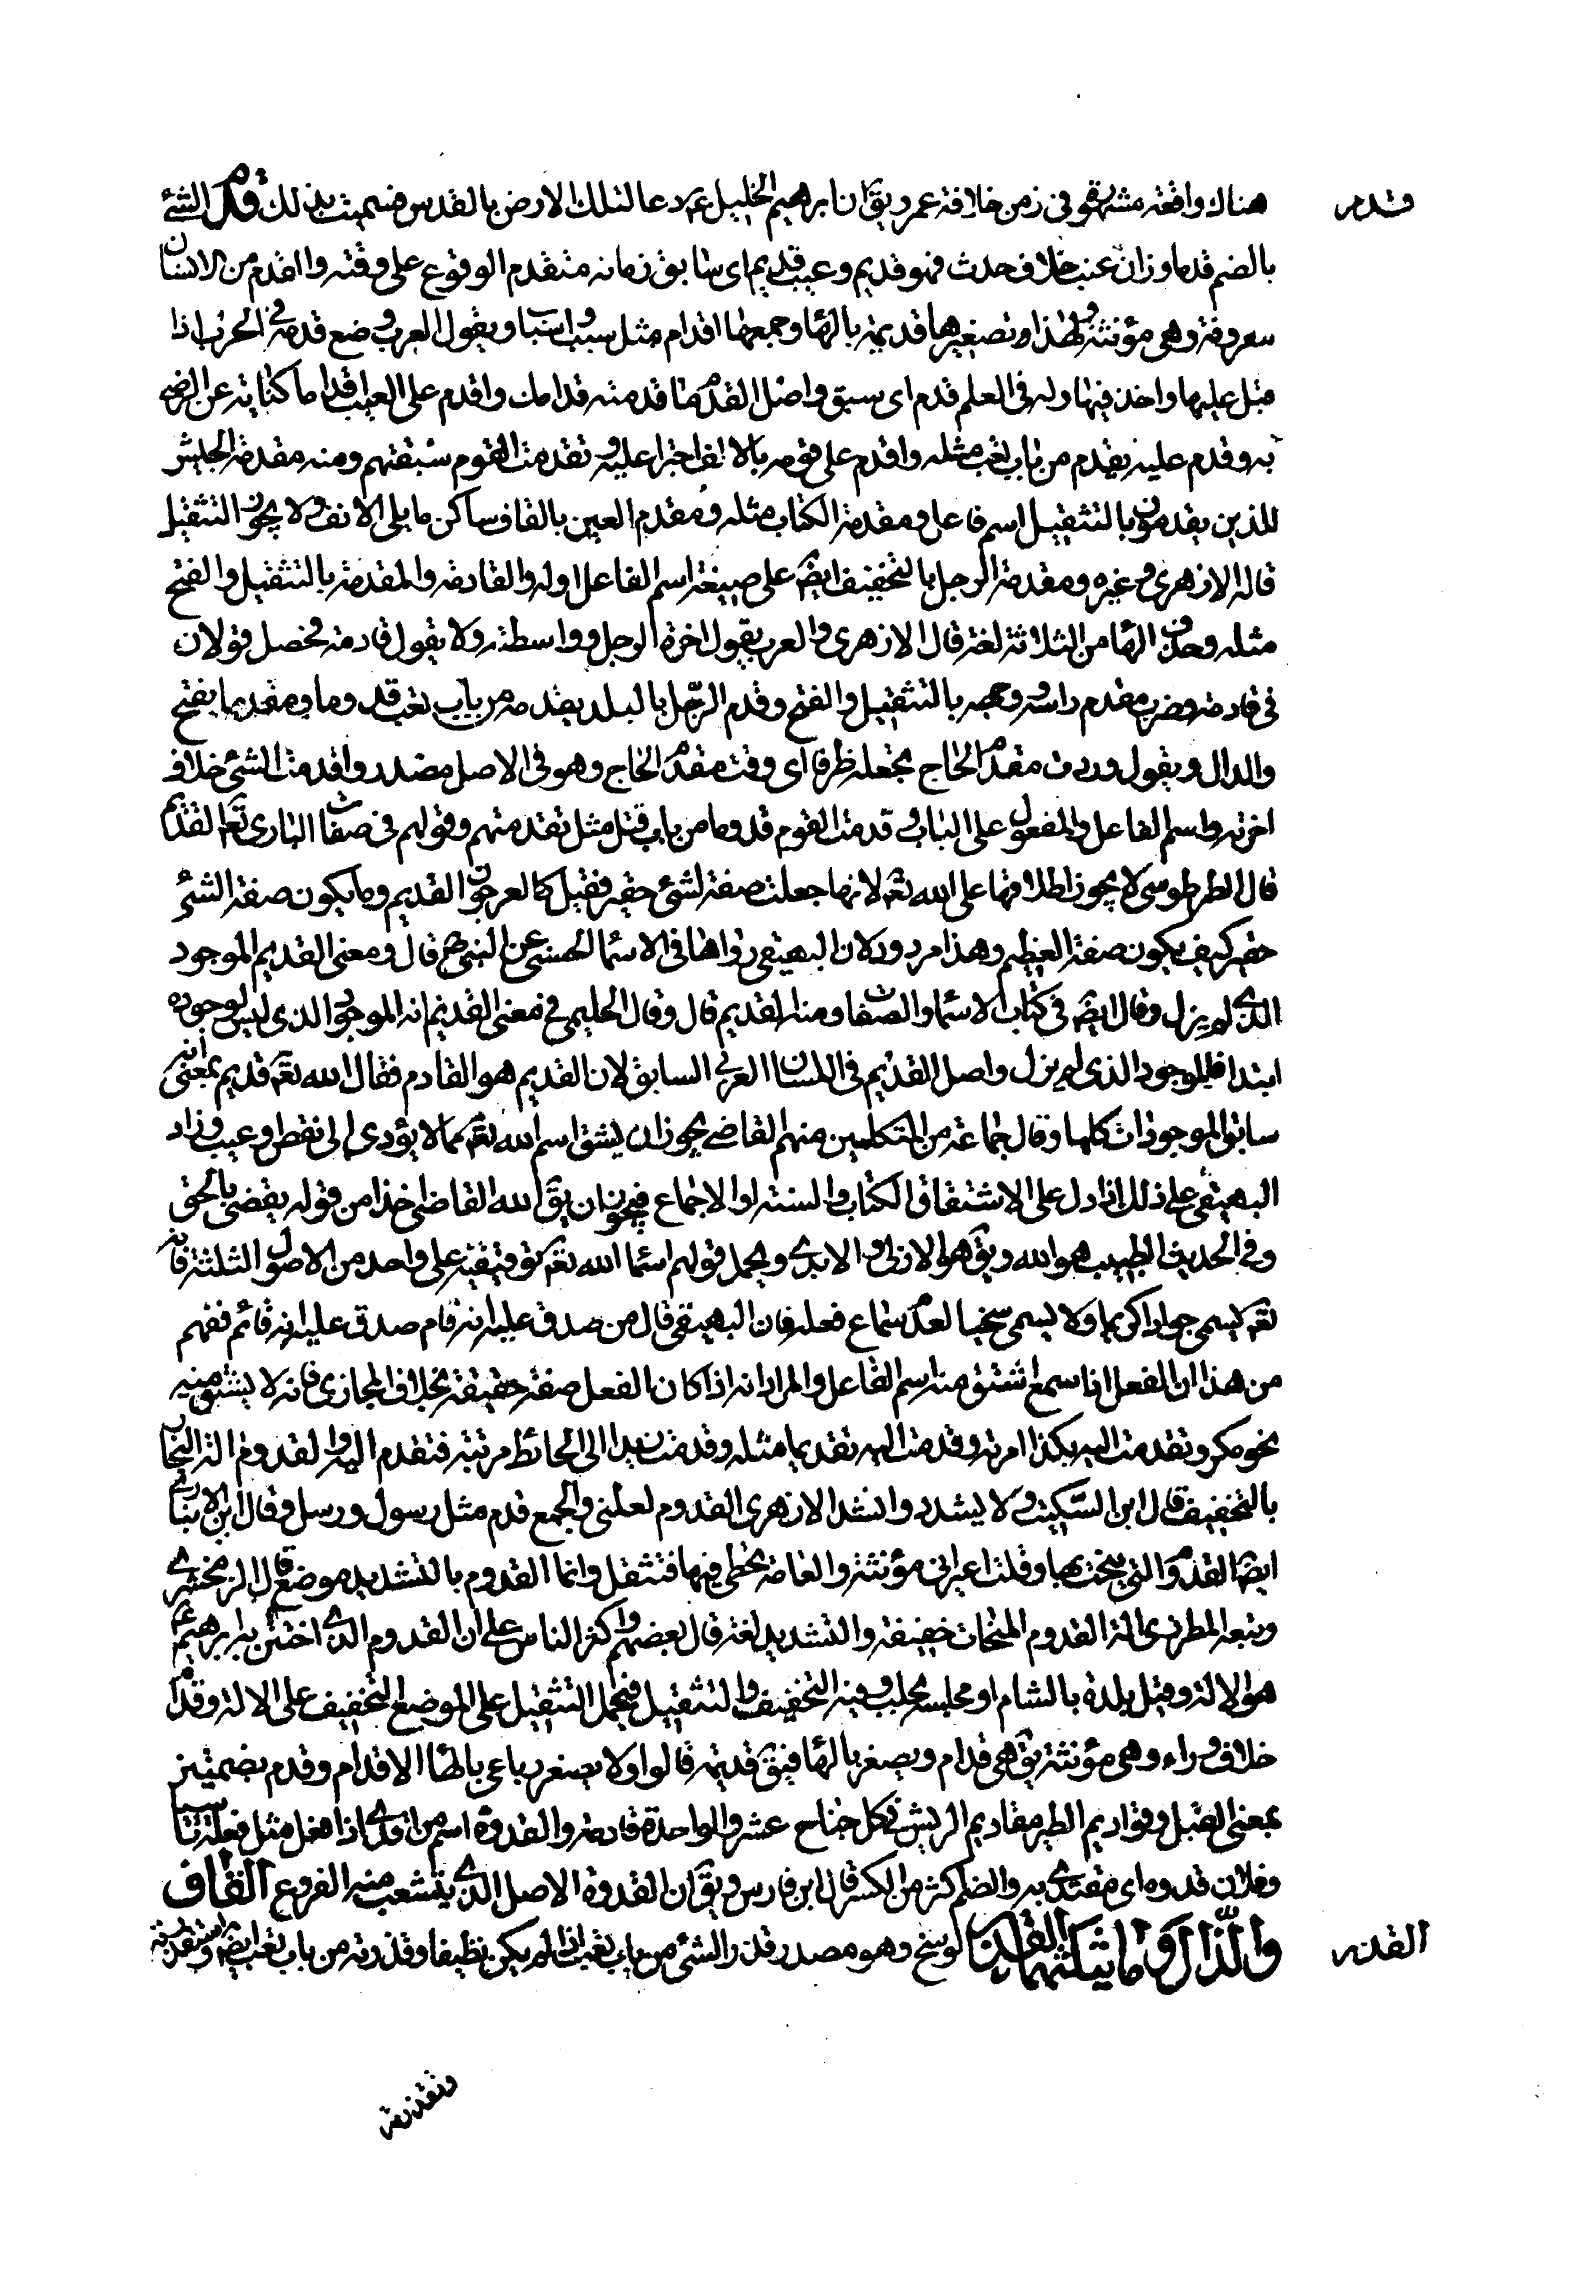 قدم
هناك واقعة مشهورة فى زمن خلافة عمر ويق ان ابرهيم الخليل عم دعا لتلك الارض بالقدس فسميت بذلك قدم الشئ
بالضم قدما وزان عنب خلاف حدث فهو قديم وعيب قديم اى سابق زمانه متقدم الوقوع على وقته والقدم من الانسان
معروفة وهى مؤنثة ولهذا تصغيرها قديمة بالهاء وجمعها اقدام مثل سبب واسباب ويقول العرب وضع قدمه فى الحرب اذا
قبل عليها واخذ فيها وله فى العلم قدم اى سبق واصل القدم ما قدمته قدامك واقدم على العيب اقداما كناية عن الرضى
به وقدم عليه يقدم من باب تعب مثله واقدم على قومه بالالف اجترا عليه وتقدمت القوم سبقتهم ومنه مقدمة الجيش
للذين يقدمون بالتثقيل اسم فاعل ومقدمة الكتاب مثله ومقدم العين بالقاف ساكن ما يلى الانف ولا يجوز التثقيل
قاله الازهرى وغيره ومقدمة الرحل بالتخفيف ايض على صيغة اسم الفاعل اوله والقادمة والمقدمة بالتثقيل والفتح
مثله وحذف الهاء من الثلاثة لغة قال الازهرى والعرب يقول اخرة الرحل وواسطته ولا يقول قادمة فحصل قولان
فى قادمة وضرب مقدم راسه ووجهه بالتثقيل والفتح وقدم الرجل بالبلد يقدمه من باب تعب قدوما ومقدما بفتح
والدال ويقول وردت مقدم الحاج بجعله ظرفا اى وقت مقدم الحاج وهو فى الاصل مصدر واقدمت الشئ خلاف
اخرته واسم الفاعل والمفعول على الباب وقدمت القوم قدوما من باب قتل مثل تقدمتهم وقولهم فى صفات البارى تع القديم
قال الطرطوسى لا يجوز اطلاقها على الله تع لانها جعلت صفة لشئ حقير فقيل كالعرجون القديم وما يكون صفة الشئ
حقير كيف يكون صفة العظيم وهذا مردود لان البيهقى رواها فى الاسماء الحسنى عن النبى ص قال ومعنى القديم الموجود
الذى لم يزل وقال ايض فى كتاب الاسماء والصفات ومنها القديم قال وقال الحليمى فى معنى القديم انه الموجود الذى ليس لوجوده
ابتدا والموجود الذى لم يزل واصل القديم فى اللسان العربى السابق لان القديم هو القادم فقال الله تع قديم بمعنى انه
سابق الموجودات كلها وقال جماعة من المتكلمين منهم القاضى يجوز ان يشتق اسم الله تع مما لا يؤدى الى نقص او عيب وزاد
البيهقى على ذلك اذا دل على الاشتقاق الكتاب والسنة او الاجماع فيجوز ان يق الله القاضى اخذا من قوله يقضى بالحق
وفى الحديث الطبيب هو الله ويق هو الازلى والابدى ويحمل قولهم اسماء الله تع توقيفية على واحد من الاصول الثلثة فانه
تع يسمى جوادا كريما ولا يسمى سخيا لعدم سماع فعله فان البيهقى قال من صدق عليه انه قام صدق عليه انه قائم ففهم
من هذا ان الفعل اذا سمع اشتق منه اسم الفاعل والمراد انه اذا كان الفعل صفة حقيقة بخلاف المجازى فانه لا يشتق منه
نحو مكر وتقدمت اليه بكذا امرته وقدمت اليه تقديما مثله وقدمت زيدا الى الحائط قربته فتقدم اليه والقدوم الة النجار
بالتخفيف قال ابن السكيت ولا يشدد وانشد الازهرى القدوم لعلنى والجمع قدم مثل رسول ورسل وقال ابن الانبارى
ايضا القدوم التى ينحت بها وقلت اعيرانى مؤنثة والعامة يخطى فيها فتثقل وانما القدوم بالتشديد موضع قال الزمخشرى
وتبعه المطرزى الة القدوم المنحات خفيفة والتشديد لغة قال بعضهم واكثر الناس على ان القدوم الذى اختتن به ابرهيم عم
هو الالة وقيل بلدة بالشام او مجلسه بحلب وفيه التخفيف والتثقيل فيحمل التثقيل على الموضع والتخفيف على الالة وقدام
خلاف وراء وهى مؤنثة يق هى قدام ويصغر بالهاء فيق قديديمة قالوا ولا يصغر رباعى بالهاء الا قدام وقدم بضمتين
بمعنى القبل وقواديم الطير مقاديم الريش فى كل جناح عشر والواحدة قادمة والقدوة اسم من اقتدى اذا فعل مثل فعله تاسيا
وفلان قدوه اى مقتدى به والضم اكثر من الكسر قال ابن فارس ويق ان القدوة الاصل الذى يتشعب منه الفروع القاف
القذر
والذال وما يثلثهما القذر الوسخ وهو مصدر قذر الشئ من باب تعب اذا لم يكن نظيفا وقذرته من باب تعب ايضا واستقذرته
وتقذرته